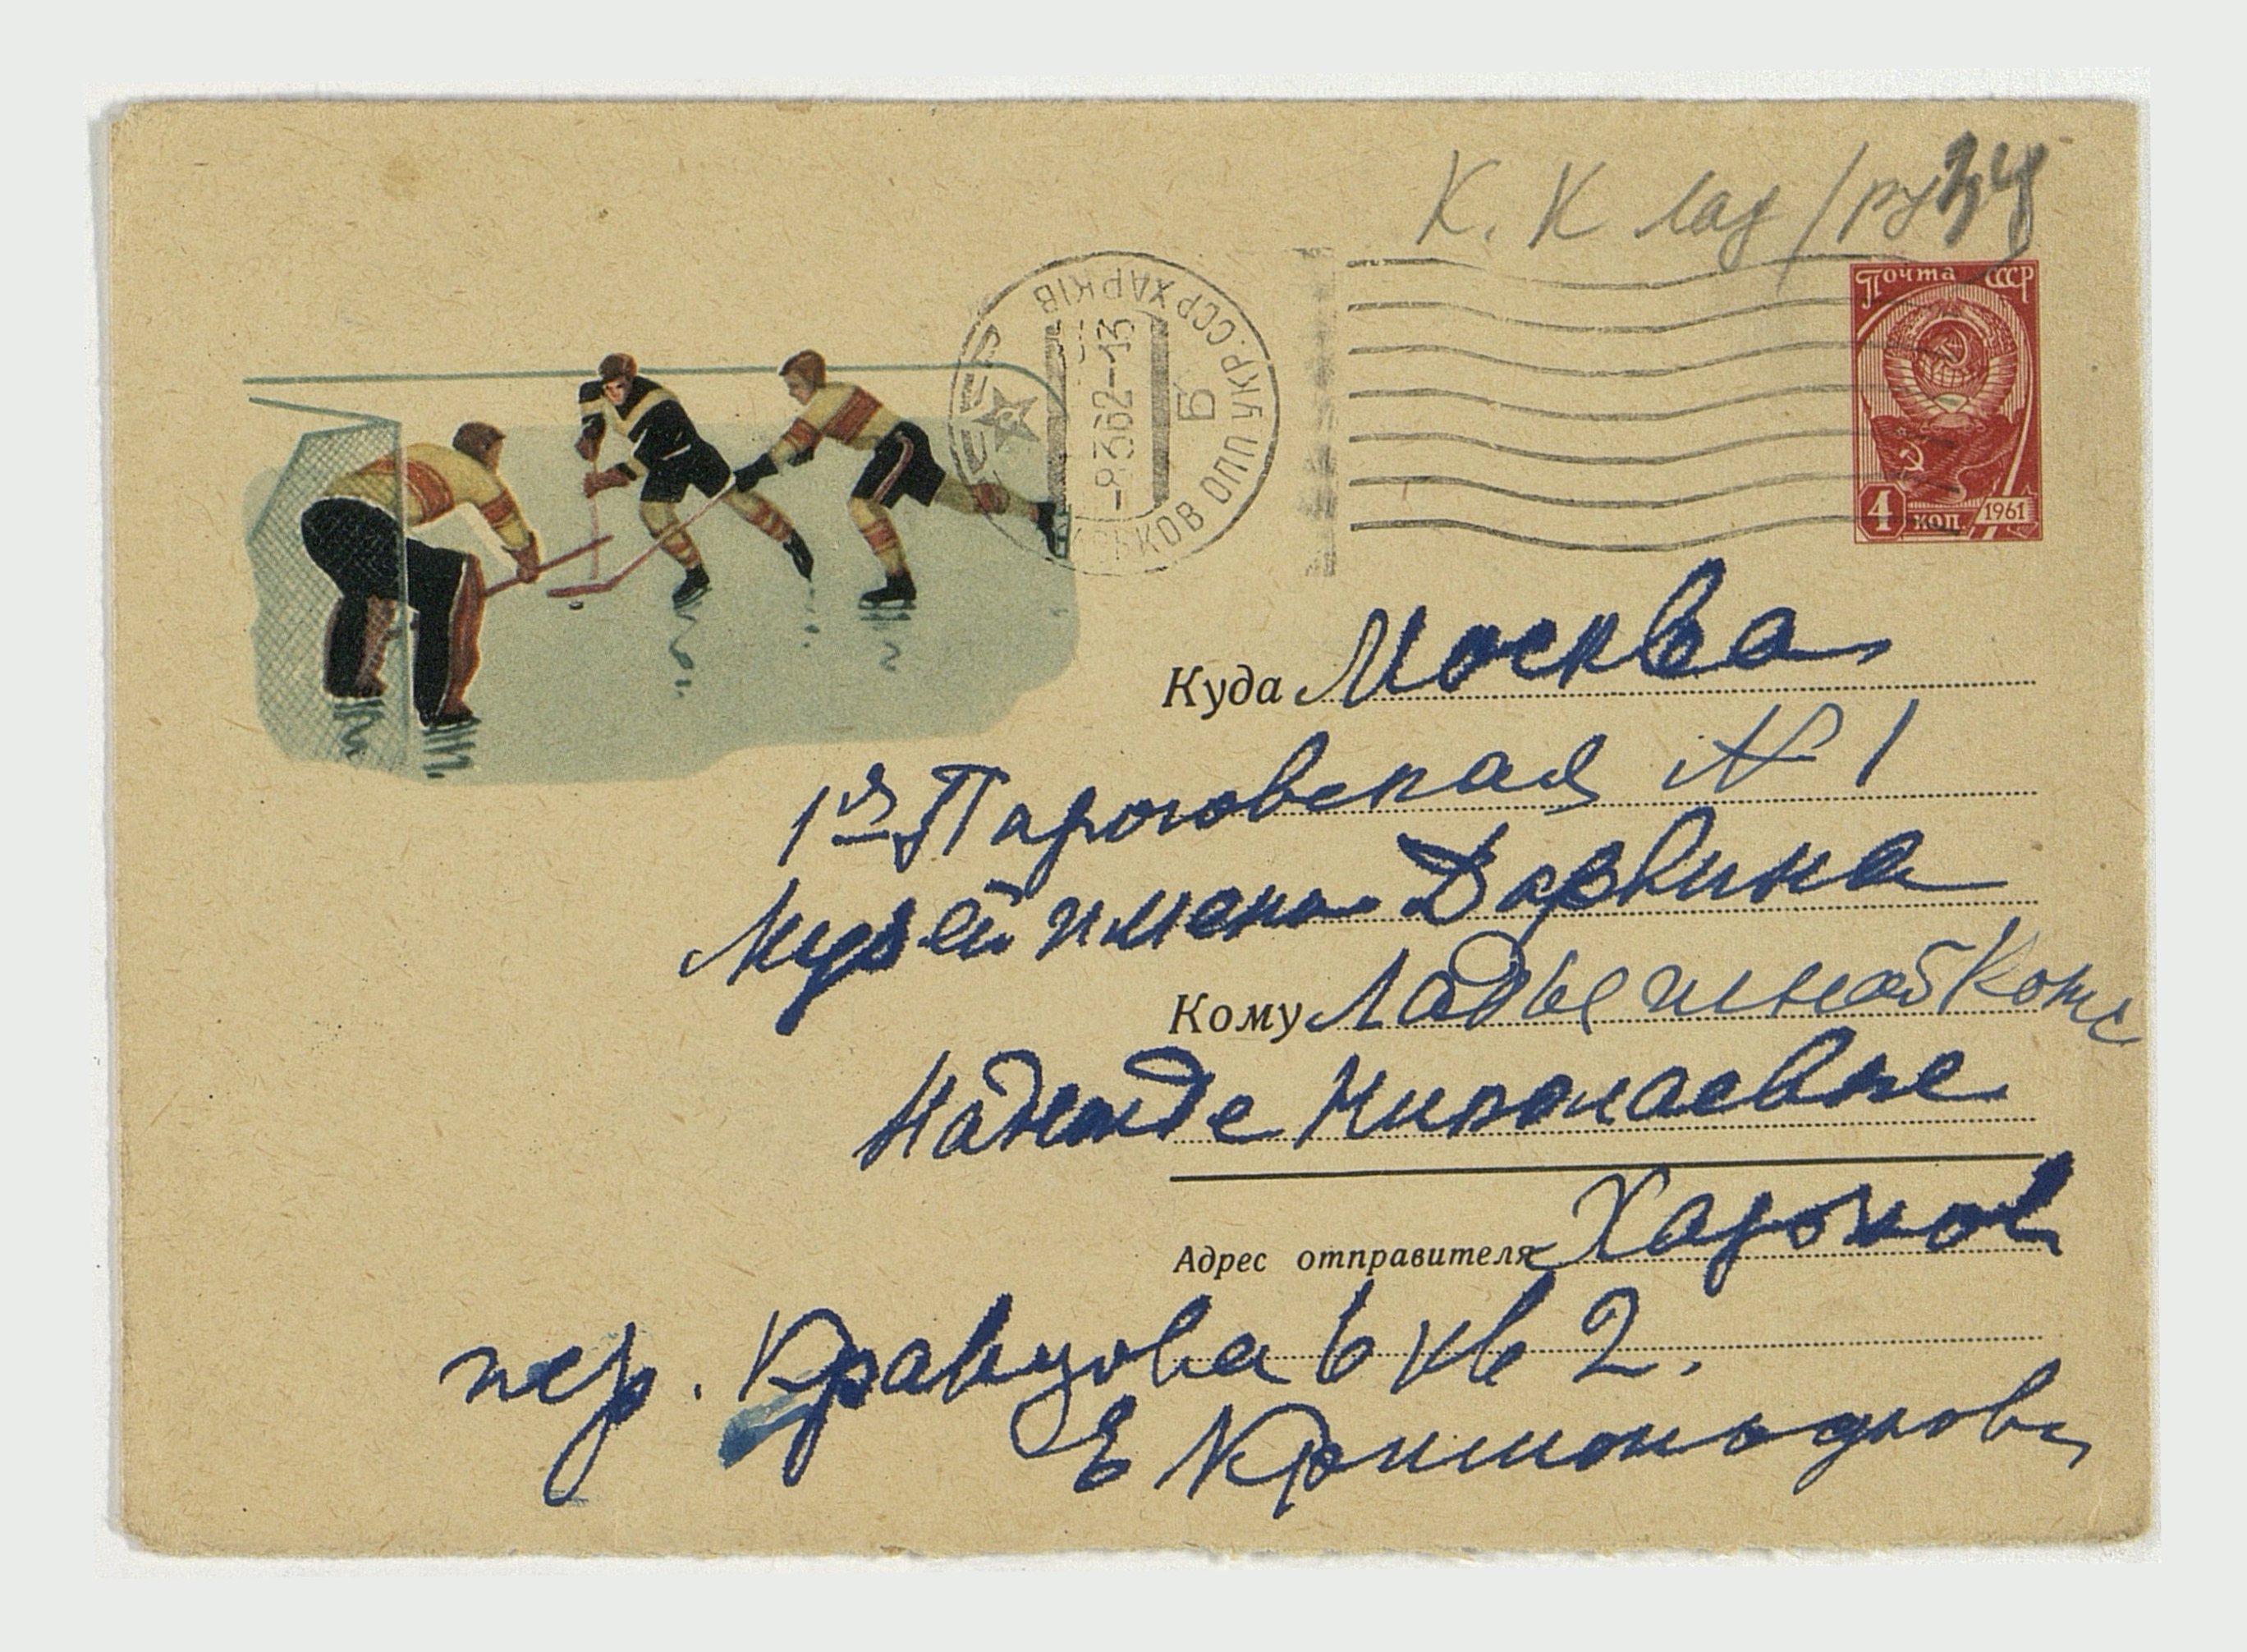 К. К Лад/
Почта СССР
4 коп. 1961
ХАРКІВ
ХАРЬКОВ ОПП УКР. ССР
-8362-13
Б
Куда Москва
1я Пароговская № 1
Музей имени Дарвина
Кому Ладыгиной Котс
Надежде Николаевне
Адрес отправителя Харьков
пер. Кравцова 6 кв 2.
Е